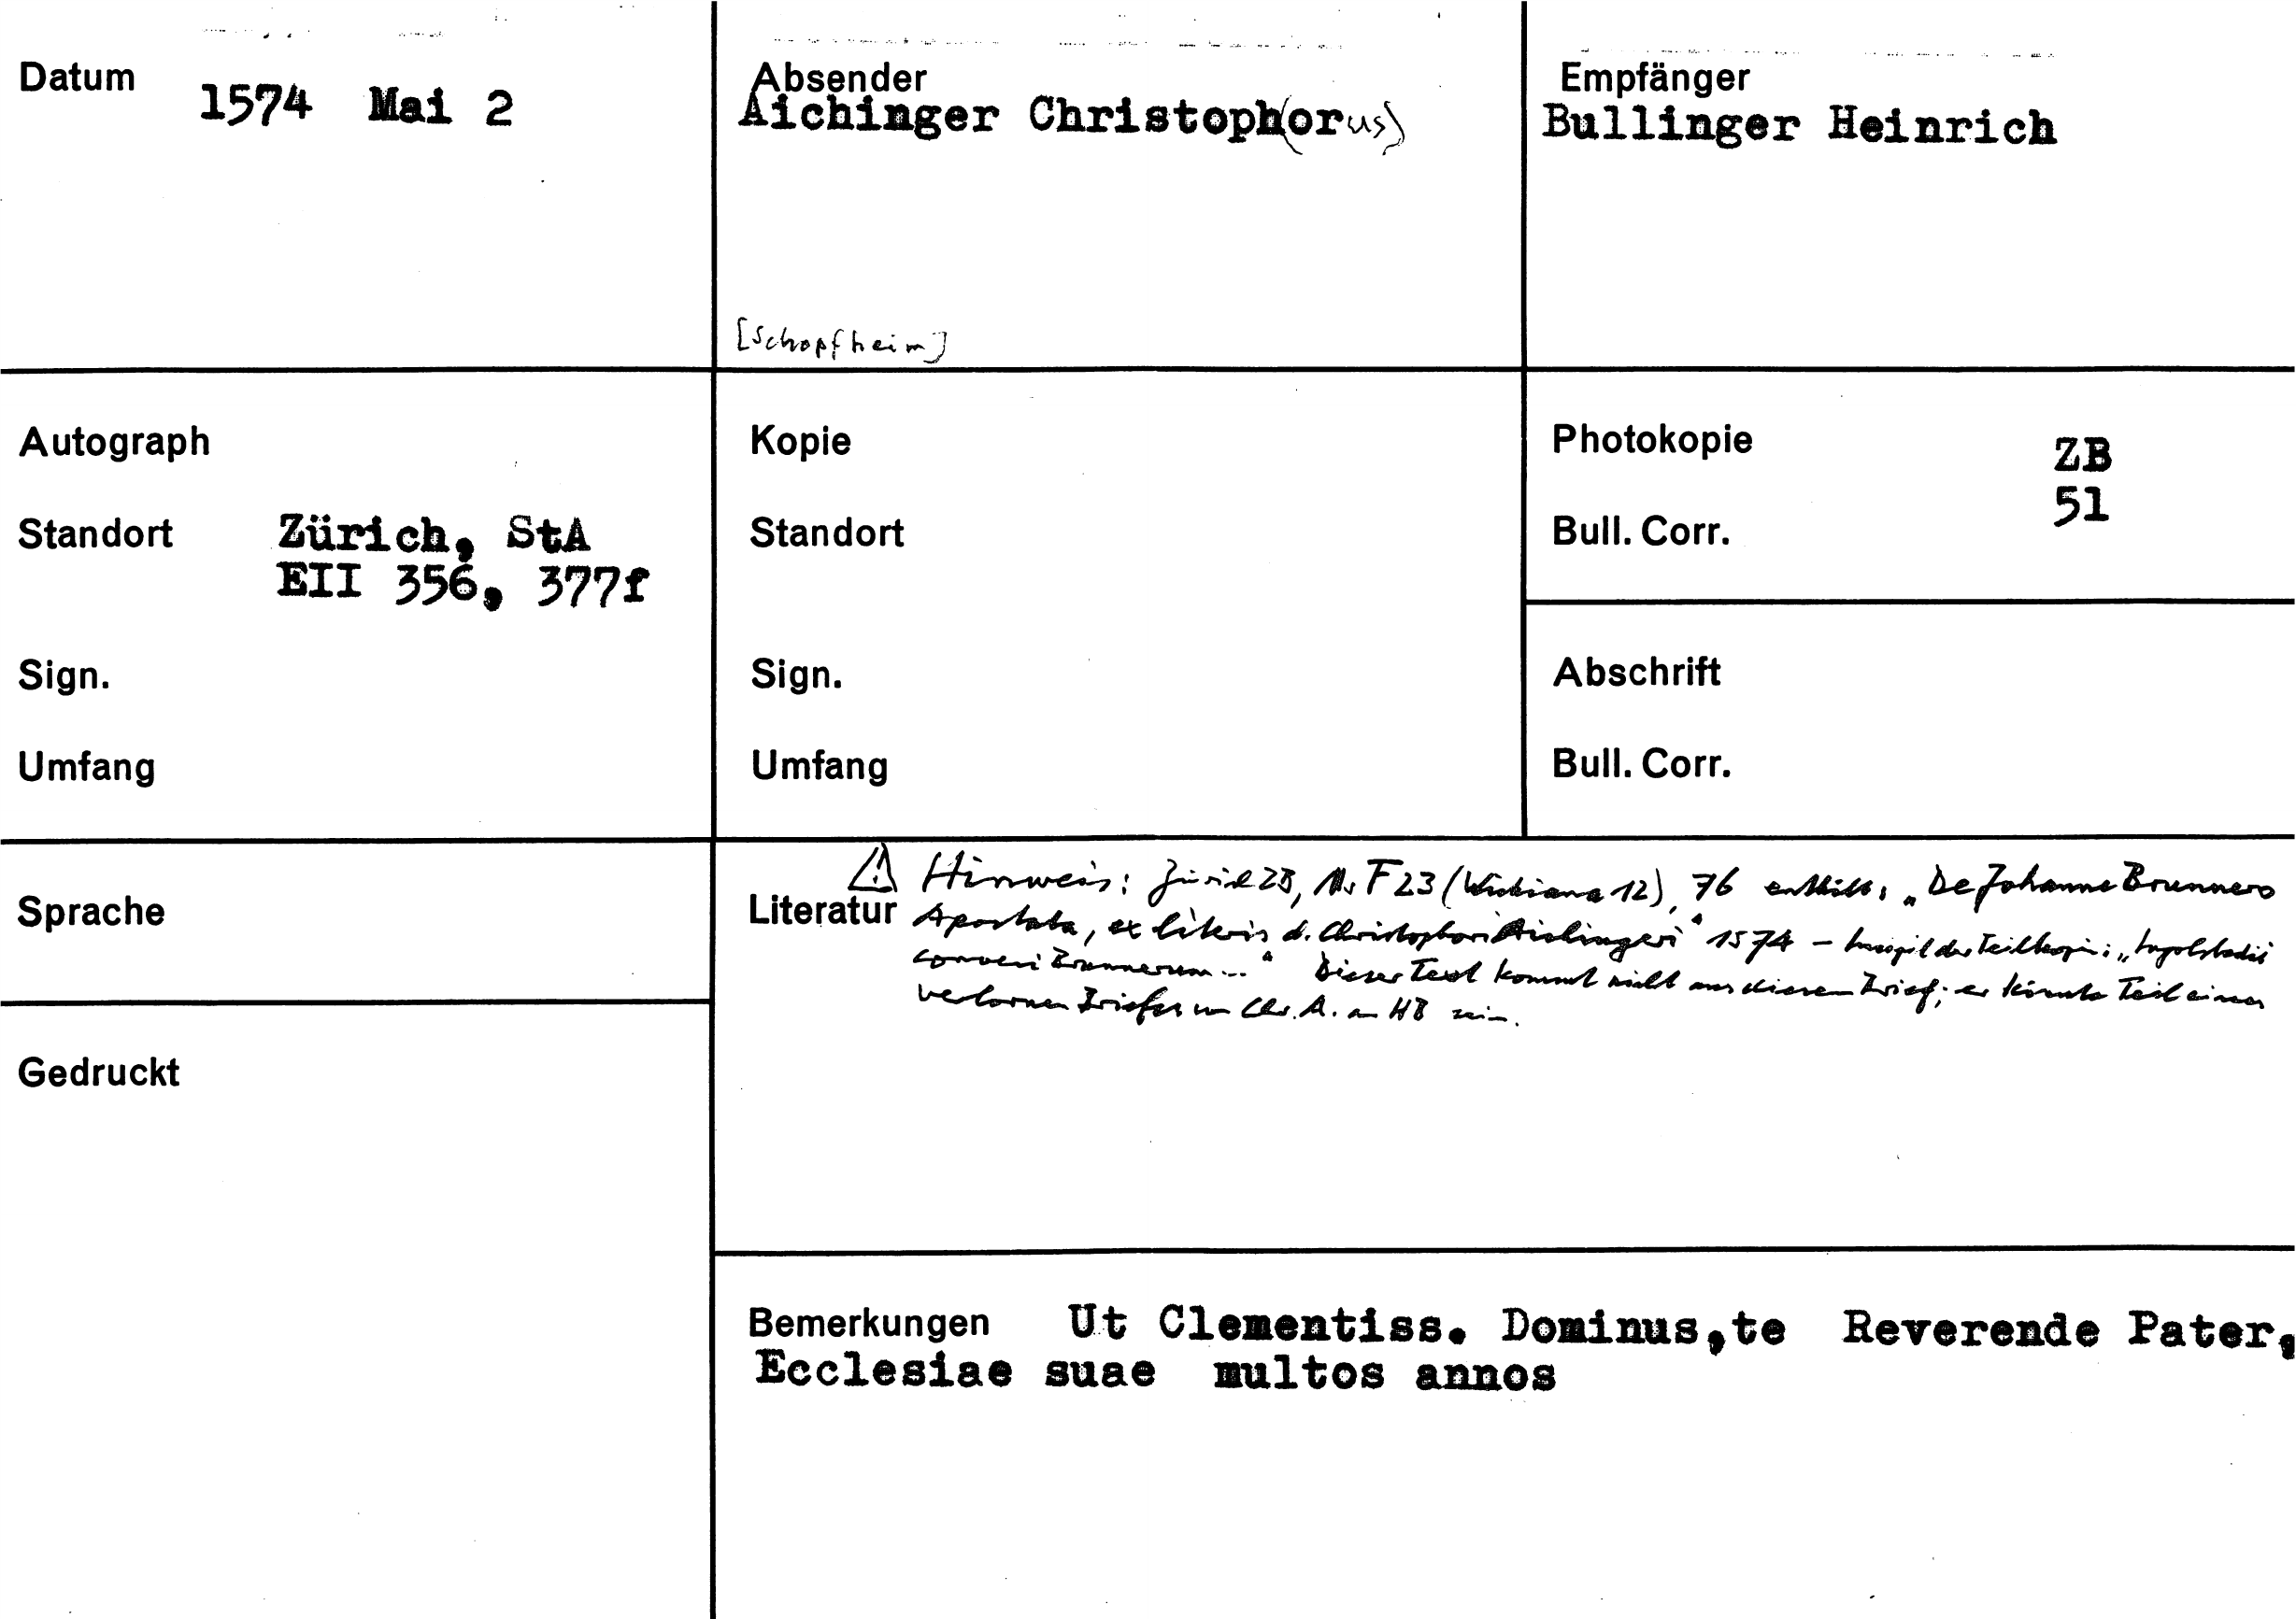 Datum 1574 Mai 2
Absender
Aichinger Christoph(orus)
[Schopfheim]
Empfänger
Bullinger Heinrich
Autograph
Standort Zürich, StA
EII 356, 377f
Sign.
Umfang
Kopie
Standort
Sign.
Umfang
Photokopie ZB
Bull. Corr. 51
Abschrift
Bull. Corr.
Sprache
Gedruckt
Literatur
⚠ Hinweis: Zürich ZB, Ms F 23 (Wickiana 12), 76 enthält: „De Johanne Brunnero
Apostata, ex literis d. Christophori Aichingeri" 1574 – Incipit der Teilkopie: „Ingolstadii
conveni Brunnerum..." Dieser Text kommt nicht aus diesem Brief; er könnte Teil eines
verlornen Briefes von Chr. A. an HB sein.
Bemerkungen Ut Clementiss. Dominus,te Reverende Pater,
Ecclesiae suae multos annos